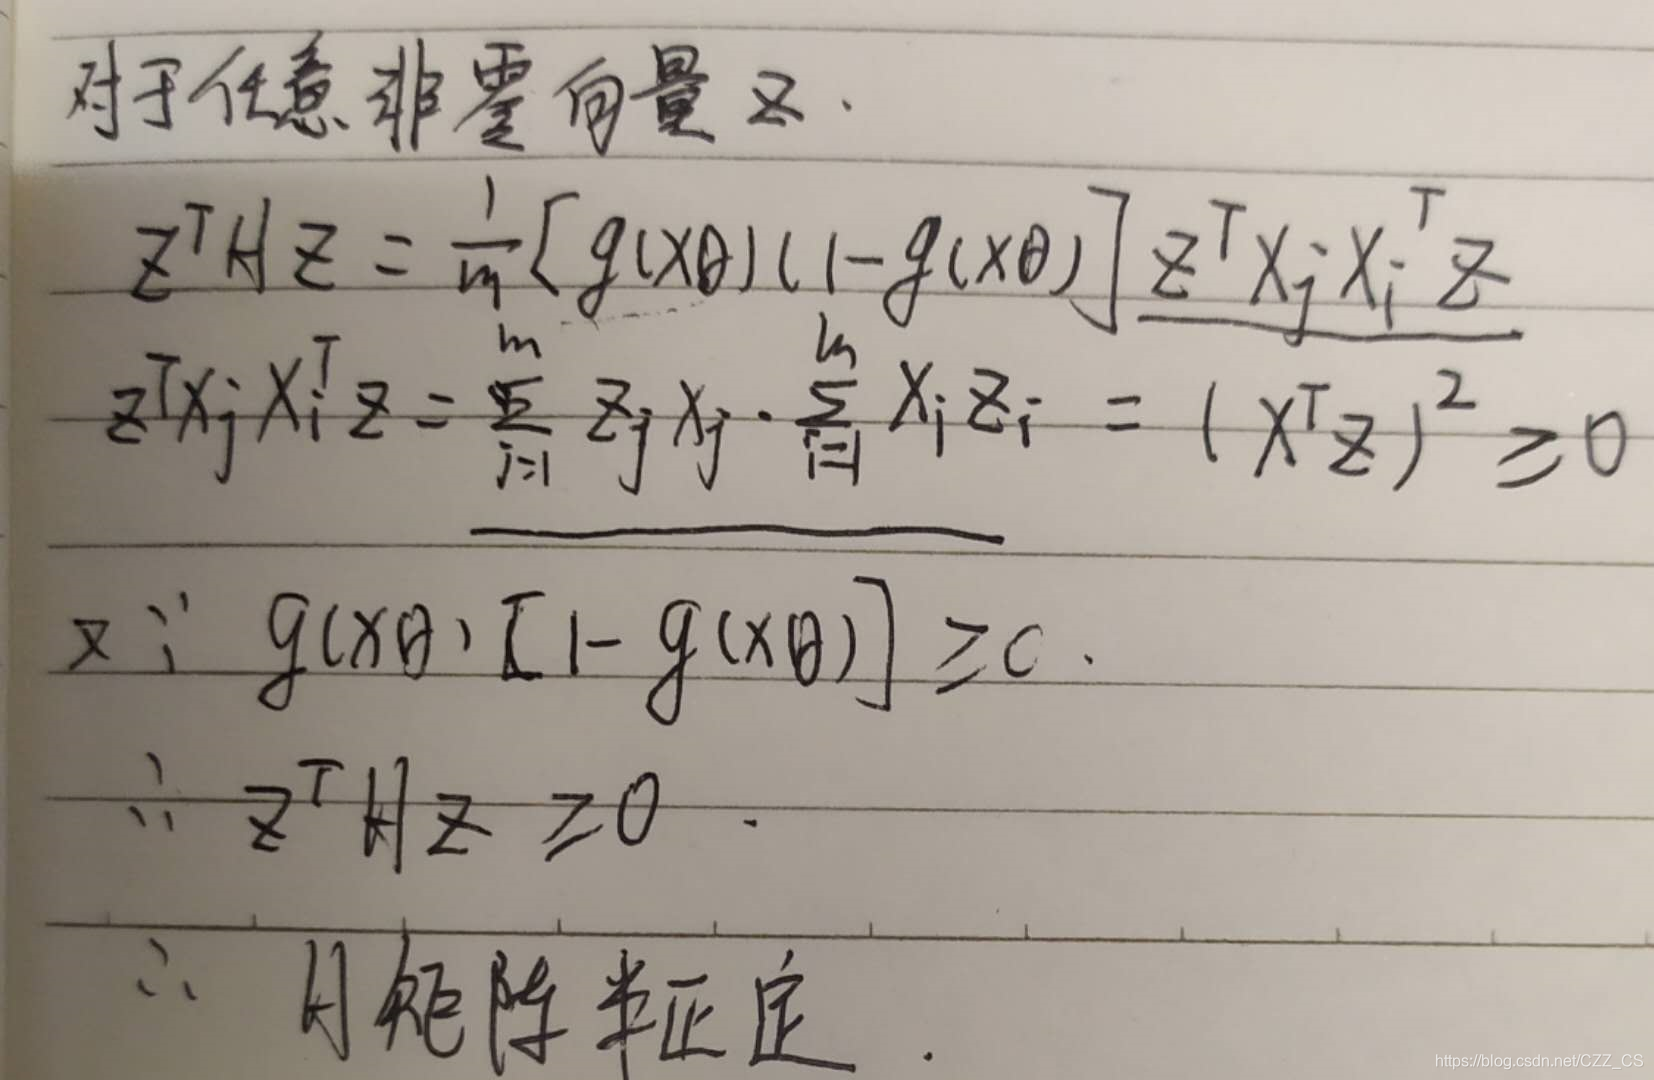 对于任意非零向量 z.
zᵀHz = 1/m [g(xθ)(1-g(xθ)] zᵀxⱼxᵢᵀz
zᵀxⱼxᵢᵀz = Σⱼ₌₁ᵐ zⱼxⱼ · Σᵢ₌₁ᵐ xᵢzᵢ = (xᵀz)² ≥0
又∵ g(xθ)[1-g(xθ)] ≥0.
∴ zᵀHz ≥0.
∴ H矩阵半正定.
https://blog.csdn.net/CZZ_CS